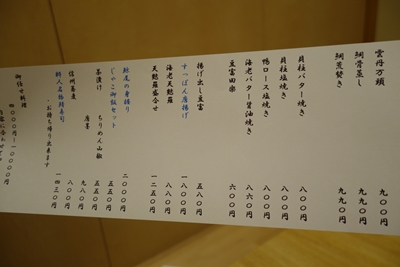 雲丹万頭 九〇〇円
鯛骨蒸し 九九〇円
鯛荒焚き 九九〇円
貝柱バター焼き 八〇〇円
貝柱塩焼き 八〇〇円
鴨ロース塩焼き 八〇〇円
海老バター醤油焼き 八六〇円
豆富田楽 六〇〇円
揚げ出し豆富 五八〇円
すっぽん唐揚げ 一八〇〇円
海老天麩羅 八八〇円
天麩羅盛合せ 一二五〇円
鮭尾の身握り 二〇〇円
じゃこ御飯セット 五五〇円
茶漬け ちりめん山椒 五五〇円
唐墨 九八〇円
信州蕎麦 八〇〇円
新人名物穴寿司 一四三〇円
・お持ち帰り出来ます
御任せ料理
四〇〇〇円〜一〇〇〇〇円